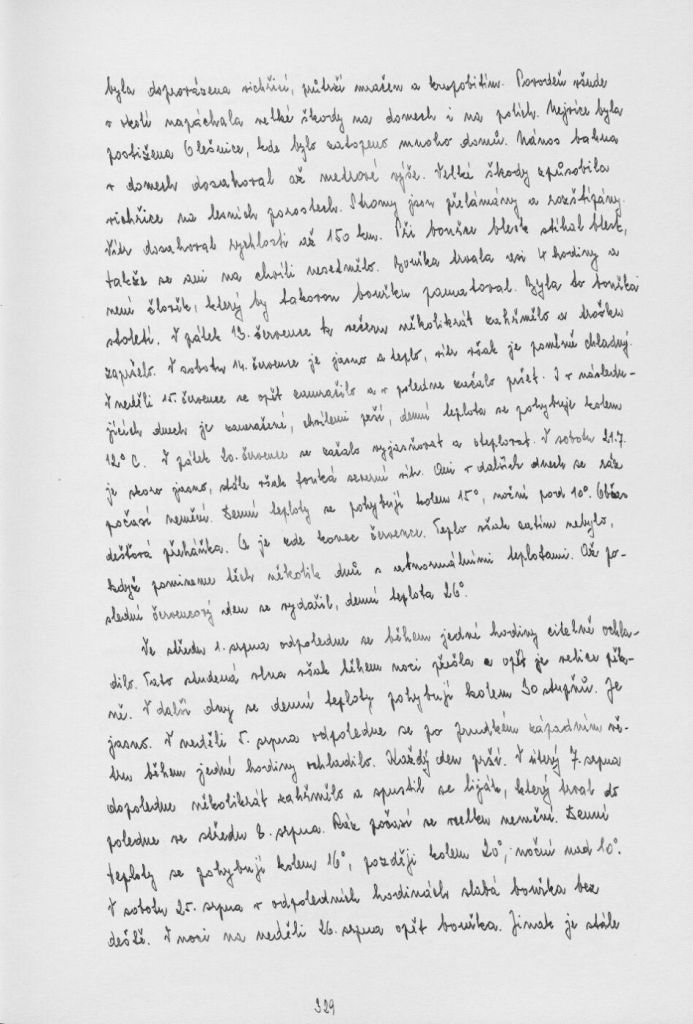 byla doprovázena vichřicí, průtrží mračen a krupobitím. Povodeň všude
v okolí napáchala velké škody na domech i na polích. Nejvíce byla
postižena Olešnice, kde bylo zatopeno mnoho domů. Nános bahna
v domech dosahoval až metrové výše. Velké škody způsobila
vichřice na lesních porostech. Stromy jsou přelámány a rozštípány.
Vítr dosahoval rychlosti až 150 km. Při bouřce blesk stíhal blesk,
takže se ani na chvíli nesetmělo. Bouřka trvala asi 4 hodiny a
není človék, který by takovou bouřku pamatoval. Byla to bouřka
století. V pátek 13. července k večeru několikrát zahřmělo a trošku
zapršelo. V sobotu 14. července je jasno a teplo, vítr však je poměrně chladný.
V neděli 15. července se opět zamračilo a v poledne začalo pršet. I v následu-
jících dnech je zamračené, chvílemi prší, denní teplota se pohybuje kolem
12° C. V pátek 20. července se začalo vyjasňovat a oteplovat. V sobotu 21.7.
je skoro jasno, stále však fouká severní vítr. Ani v dalších dnech se ráz
počasí nemění. Denní teploty se pohybují kolem 15°, noční pod 10°. Občas
dešťová přeháňka. A je zde konec července. Teplo však zatím nebylo,
když pomineme těch několik dnů s nenormálními teplotami. Až po-
slední červencový den se vydařil, denní teplota 26°.
Ve středu 1. srpna odpoledne se během jedné hodiny citelně ochla-
dilo. Tato studená vlna však během noci přešla a opět je velice pěk-
ně. V další dny se denní teploty pohybují kolem 30 stupňů. Je
jasno. V neděli 5. srpna odpoledne se po prudkém západním vě-
tru během jedné hodiny ochladilo. Každý den prší. V úterý 7. srpna
dopoledne několikrát zahřmělo a spustil se liják, který trval do
poledne ve středu 8. srpna. Ráz počasí se vcelku nemění. Denní
teploty se pohybují kolem 16°, později kolem 20°, noční nad 10°.
V sobotu 25. srpna v odpoledních hodinách slabá bouřka bez
deště. V noci na neděli 26. srpna opět bouřka. Jinak je stále
329